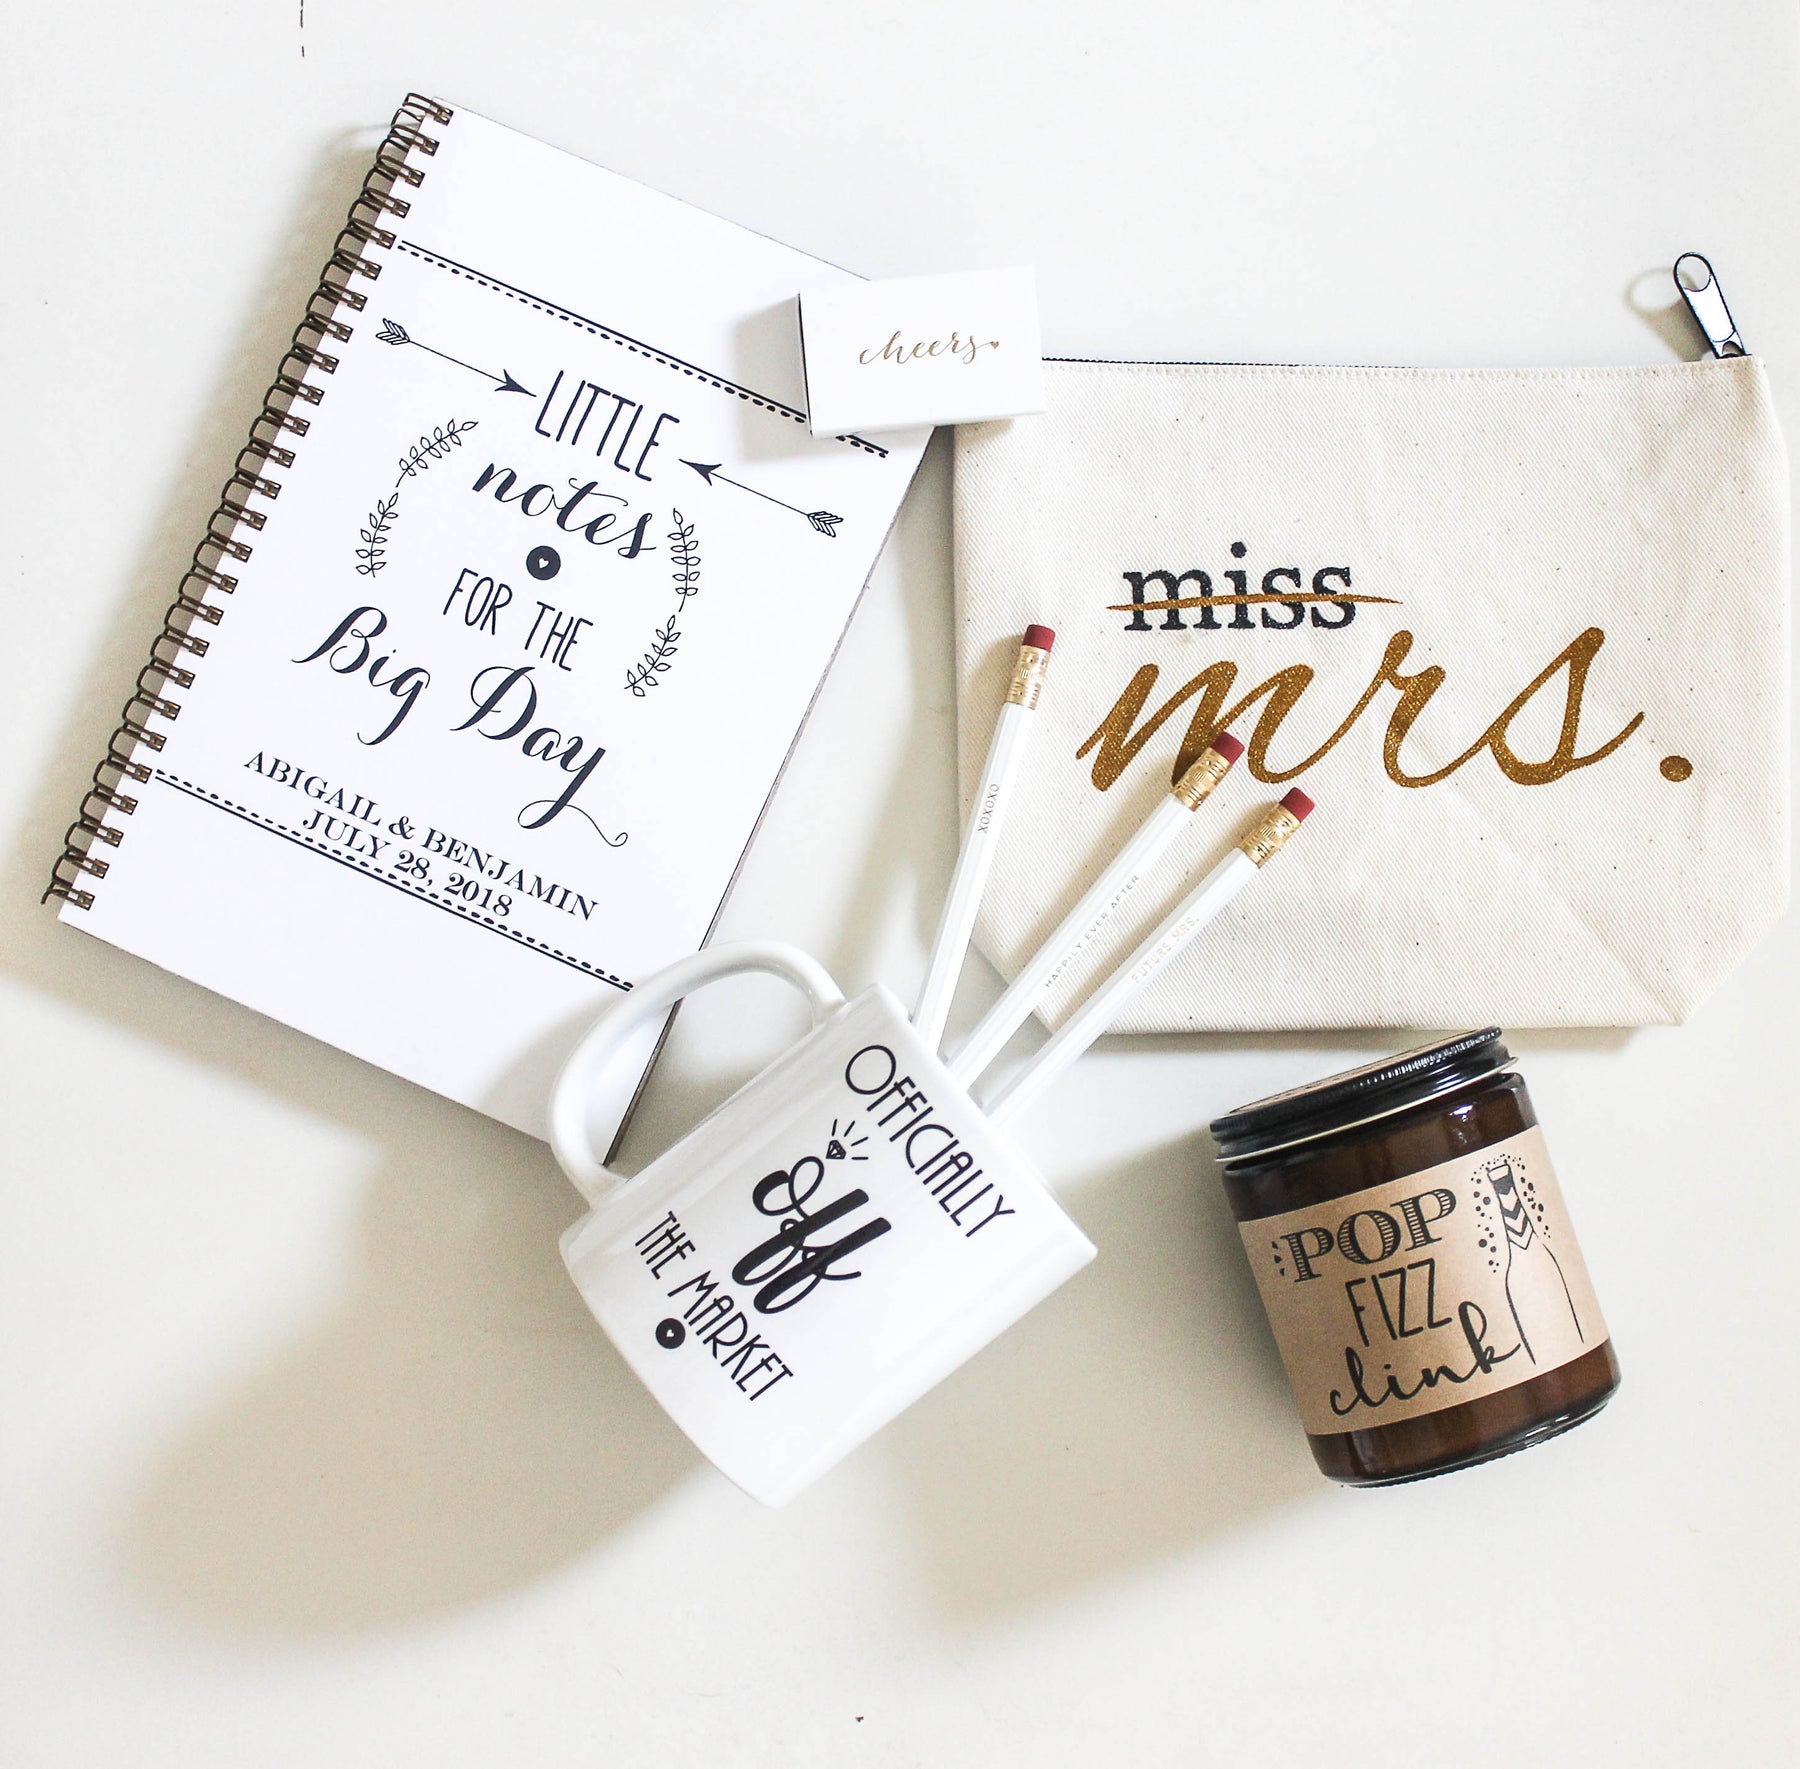 LITTLE
notes
FOR THE
Big Day
ABIGAIL & BENJAMIN
JULY 28, 2018
cheers
miss
mrs.
XOXOXO
HAPPILY EVER AFTER
FUTURE MRS.
OFFICIALLY
off
THE MARKET
POP
FIZZ
clink